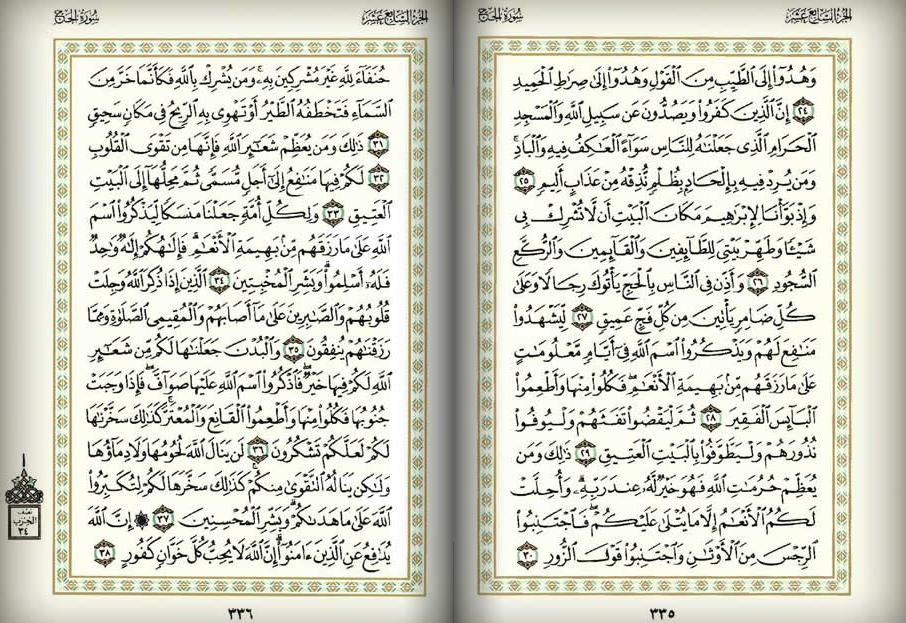 الجزء السابع عشر
سورة الحج
وَهُدُوٓا۟ إِلَى ٱلطَّيِّبِ مِنَ ٱلْقَوْلِ وَهُدُوٓا۟ إِلَىٰ صِرَٰطِ ٱلْحَمِيدِ
٢٤ إِنَّ ٱلَّذِينَ كَفَرُوا۟ وَيَصُدُّونَ عَن سَبِيلِ ٱللَّهِ وَٱلْمَسْجِدِ
ٱلْحَرَامِ ٱلَّذِى جَعَلْنَٰهُ لِلنَّاسِ سَوَآءً ٱلْعَٰكِفُ فِيهِ وَٱلْبَادِ ۚ
وَمَن يُرِدْ فِيهِ بِإِلْحَادٍۭ بِظُلْمٍ نُّذِقْهُ مِنْ عَذَابٍ أَلِيمٍ ٢٥
وَإِذْ بَوَّأْنَا لِإِبْرَٰهِيمَ مَكَانَ ٱلْبَيْتِ أَن لَّا تُشْرِكْ بِى
شَيْـًٔا وَطَهِّرْ بَيْتِىَ لِلطَّآئِفِينَ وَٱلْقَآئِمِينَ وَٱلرُّكَّعِ
ٱلسُّجُودِ ٢٦ وَأَذِّن فِى ٱلنَّاسِ بِٱلْحَجِّ يَأْتُوكَ رِجَالًا وَعَلَىٰ
كُلِّ ضَامِرٍ يَأْتِينَ مِن كُلِّ فَجٍّ عَمِيقٍ ٢٧ لِّيَشْهَدُوا۟
مَنَٰفِعَ لَهُمْ وَيَذْكُرُوا۟ ٱسْمَ ٱللَّهِ فِىٓ أَيَّامٍ مَّعْلُومَٰتٍ
عَلَىٰ مَا رَزَقَهُم مِّنۢ بَهِيمَةِ ٱلْأَنْعَٰمِ ۖ فَكُلُوا۟ مِنْهَا وَأَطْعِمُوا۟
ٱلْبَآئِسَ ٱلْفَقِيرَ ٢٨ ثُمَّ لْيَقْضُوا۟ تَفَثَهُمْ وَلْيُوفُوا۟
نُذُورَهُمْ وَلْيَطَّوَّفُوا۟ بِٱلْبَيْتِ ٱلْعَتِيقِ ٢٩ ذَٰلِكَ وَمَن
يُعَظِّمْ حُرُمَٰتِ ٱللَّهِ فَهُوَ خَيْرٌ لَّهُۥ عِندَ رَبِّهِۦ ۗ وَأُحِلَّتْ
لَكُمُ ٱلْأَنْعَٰمُ إِلَّا مَا يُتْلَىٰ عَلَيْكُمْ ۖ فَٱجْتَنِبُوا۟
ٱلرِّجْسَ مِنَ ٱلْأَوْثَٰنِ وَٱجْتَنِبُوا۟ قَوْلَ ٱلزُّورِ ٣٠
٣٣٥
الجزء السابع عشر
سورة الحج
حُنَفَآءَ لِلَّهِ غَيْرَ مُشْرِكِينَ بِهِۦ ۚ وَمَن يُشْرِكْ بِٱللَّهِ فَكَأَنَّمَا خَرَّ مِنَ
ٱلسَّمَآءِ فَتَخْطَفُهُ ٱلطَّيْرُ أَوْ تَهْوِى بِهِ ٱلرِّيحُ فِى مَكَانٍ سَحِيقٍ
٣١ ذَٰلِكَ وَمَن يُعَظِّمْ شَعَٰٓئِرَ ٱللَّهِ فَإِنَّهَا مِن تَقْوَى ٱلْقُلُوبِ
٣٢ لَكُمْ فِيهَا مَنَٰفِعُ إِلَىٰٓ أَجَلٍ مُّسَمًّى ثُمَّ مَحِلُّهَآ إِلَى ٱلْبَيْتِ
ٱلْعَتِيقِ ٣٣ وَلِكُلِّ أُمَّةٍ جَعَلْنَا مَنسَكًا لِّيَذْكُرُوا۟ ٱسْمَ
ٱللَّهِ عَلَىٰ مَا رَزَقَهُم مِّنۢ بَهِيمَةِ ٱلْأَنْعَٰمِ ۗ فَإِلَٰهُكُمْ إِلَٰهٌ وَٰحِدٌ
فَلَهُۥٓ أَسْلِمُوا۟ ۗ وَبَشِّرِ ٱلْمُخْبِتِينَ ٣٤ ٱلَّذِينَ إِذَا ذُكِرَ ٱللَّهُ وَجِلَتْ
قُلُوبُهُمْ وَٱلصَّٰبِرِينَ عَلَىٰ مَآ أَصَابَهُمْ وَٱلْمُقِيمِى ٱلصَّلَوٰةِ وَمِمَّا
رَزَقْنَٰهُمْ يُنفِقُونَ ٣٥ وَٱلْبُدْنَ جَعَلْنَٰهَا لَكُم مِّن شَعَٰٓئِرِ
ٱللَّهِ لَكُمْ فِيهَا خَيْرٌ ۖ فَٱذْكُرُوا۟ ٱسْمَ ٱللَّهِ عَلَيْهَا صَوَآفَّ ۖ فَإِذَا وَجَبَتْ
جُنُوبُهَا فَكُلُوا۟ مِنْهَا وَأَطْعِمُوا۟ ٱلْقَانِعَ وَٱلْمُعْتَرَّ ۚ كَذَٰلِكَ سَخَّرْنَٰهَا
لَكُمْ لَعَلَّكُمْ تَشْكُرُونَ ٣٦ لَن يَنَالَ ٱللَّهَ لُحُومُهَا وَلَا دِمَآؤُهَا
وَلَٰكِن يَنَالُهُ ٱلتَّقْوَىٰ مِنكُمْ ۚ كَذَٰلِكَ سَخَّرَهَا لَكُمْ لِتُكَبِّرُوا۟
ٱللَّهَ عَلَىٰ مَا هَدَىٰكُمْ ۗ وَبَشِّرِ ٱلْمُحْسِنِينَ ٣٧ ۞ إِنَّ ٱللَّهَ
يُدَٰفِعُ عَنِ ٱلَّذِينَ ءَامَنُوٓا۟ ۗ إِنَّ ٱللَّهَ لَا يُحِبُّ كُلَّ خَوَّانٍ كَفُورٍ ٣٨
نصف
الحزب
٣٤
٣٣٦